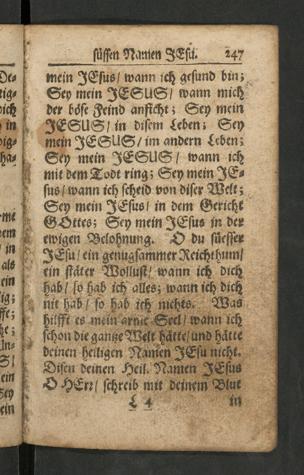 süssen Namen JEsu. 247
mein JEsus/ wann ich gesund bin;
Sey mein JESUS/ wann mich
der böse Feind anficht; Sey mein
JESUS/ in disem Leben; Sey
mein JESUS/ im andern Leben;
Sey mein JESUS/ wann ich
mit dem Todt ring; Sey mein JE-
sus/ wann ich scheid von diser Welt;
Sey mein JEsus/ in dem Gericht
GOttes; Sey mein JEsus in der
ewigen Belohnung. O du süesser
JEsu/ ein genugsammer Reichthum/
ein stäter Wollust/ wann ich dich
hab/ so hab ich alles; wann ich dich
nit hab/ so hab ich nichts. Was
hilfft es mein arme Seel/ wann ich
schon die gantze Welt hätte/ und hätte
deinen heiligen Namen JEsu nicht.
Disen deinen Heil. Namen JEsus
O HErr/ schreib mit deinem Blut
L 4 in